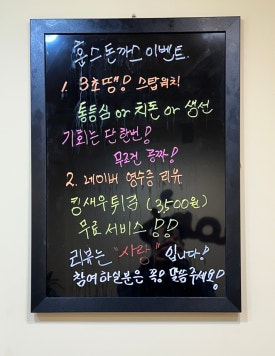 홈스돈까스 이벤트.
1. 8초땡! 스탑워치
통등심 or 치돈 or 생선
기회는 단 한번!
무조건 공짜!
2. 네이버 영수증 리뷰
킹새우튀김 (3,500원)
무료서비스!!
리뷰는 "사랑" 입니다!
참여하실분은 꼭! 말씀주세요!